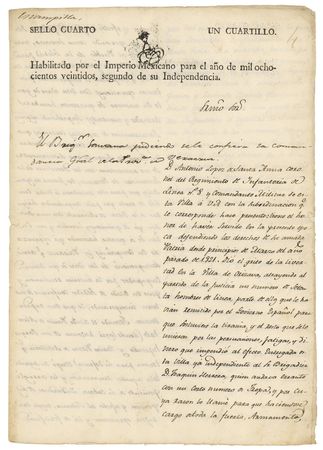 Estampilla
SELLO CUARTO UN CUARTILLO.
Habilitado por el Imperio Mexicano para el año de mil ocho-
cientos veintidos, segundo de su Independencia.
El Brigr. pidiendo se le confiera la coman
dancia Gral de la Prova. de Veracruz
D. Antonio Lopez de Santa Anna coro
nel del Regimiento de Infanteria de
Linea N.º 8 y Comandante Militar de es
ta Villa á V.A con la subordinacion q.
le corresponde hace presente: tiene el ho
nor de haver servido en la presente epo
ca defendiendo los derechos de su amada
Patria desde principios de del año
pasado de 1821. Dió el grito de la liver
tad en la Villa de Orizava, atrayendo al
partido de la Justicia un numero de
ta hombres de Linea, parte de los que le ha
vian servido por el Govierno Español para
que sostuviese la tirania, y á esto que se le
unieran por las persuasiones, fatigas, y di
nero que impendió al efecto. Entregada es
ta Villa ya independiente al S. Brigadier
D. Joaquin Herrera, quien andava errante
con un corto numero de Tropa, y por cu
ya razon lo llamó para que haciendose
cargo de toda la fuerza, Armamento,